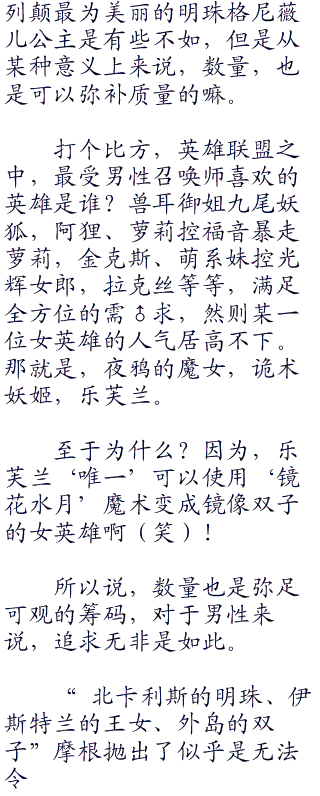 列颠最为美丽的明珠格尼薇
儿公主是有些不如，但是从
某种意义上来说，数量，也
是可以弥补质量的嘛。
打个比方，英雄联盟之
中，最受男性召唤师喜欢的
英雄是谁？兽耳御姐九尾妖
狐，阿狸、萝莉控福音暴走
萝莉，金克斯、萌系妹控光
辉女郎，拉克丝等等，满足
全方位的需♂求，然则某一
位女英雄的人气居高不下。
那就是，夜鸦的魔女，诡术
妖姬，乐芙兰。
至于为什么？因为，乐
芙兰‘唯一’可以使用‘镜
花水月’魔术变成镜像双子
的女英雄啊（笑）！
所以说，数量也是弥足
可观的筹码，对于男性来
说，追求无非是如此。
“ 北卡利斯的明珠、伊
斯特兰的王女、外岛的双
子”摩根抛出了似乎是无法
令